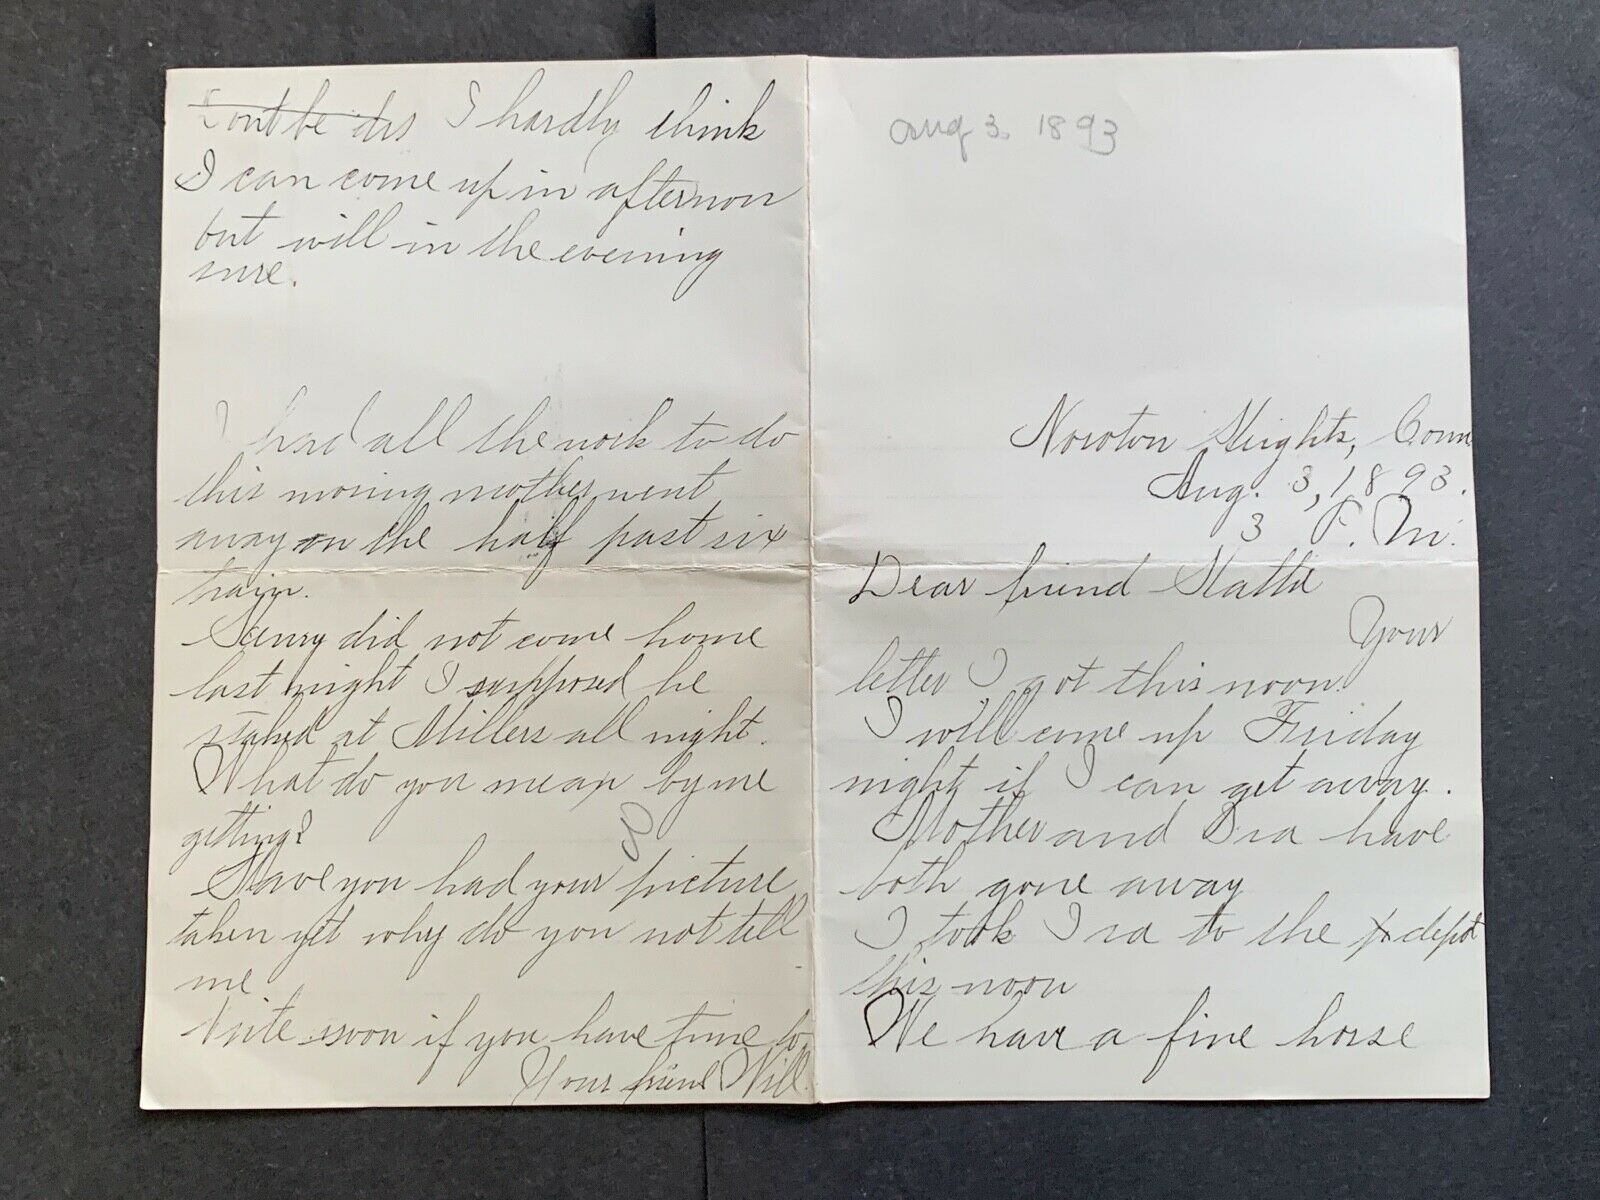 Aug 3. 1893
Noroton Heights, Conn
Aug. 3, 1893.
3 P. M.
Dear friend Hattie
Your
letter I got this noon.
I will come up Friday
night if I can get away.
Mother and Ira have
both gone away
I took Ira to the depot
this noon
We have a fine horse
Dont be dis I hardly think
I can come up in afternoon
but will in the evening
sure.
I had all the work to do
this moring mother went
away on the half past six
train.
Henry did not come home
last night I supposed he
staked at Millers all night.
What do you mean by me
getting?
Have you had your picture
taken yet why do you not tell
me
Write soon if you have time to
Your friend Will.